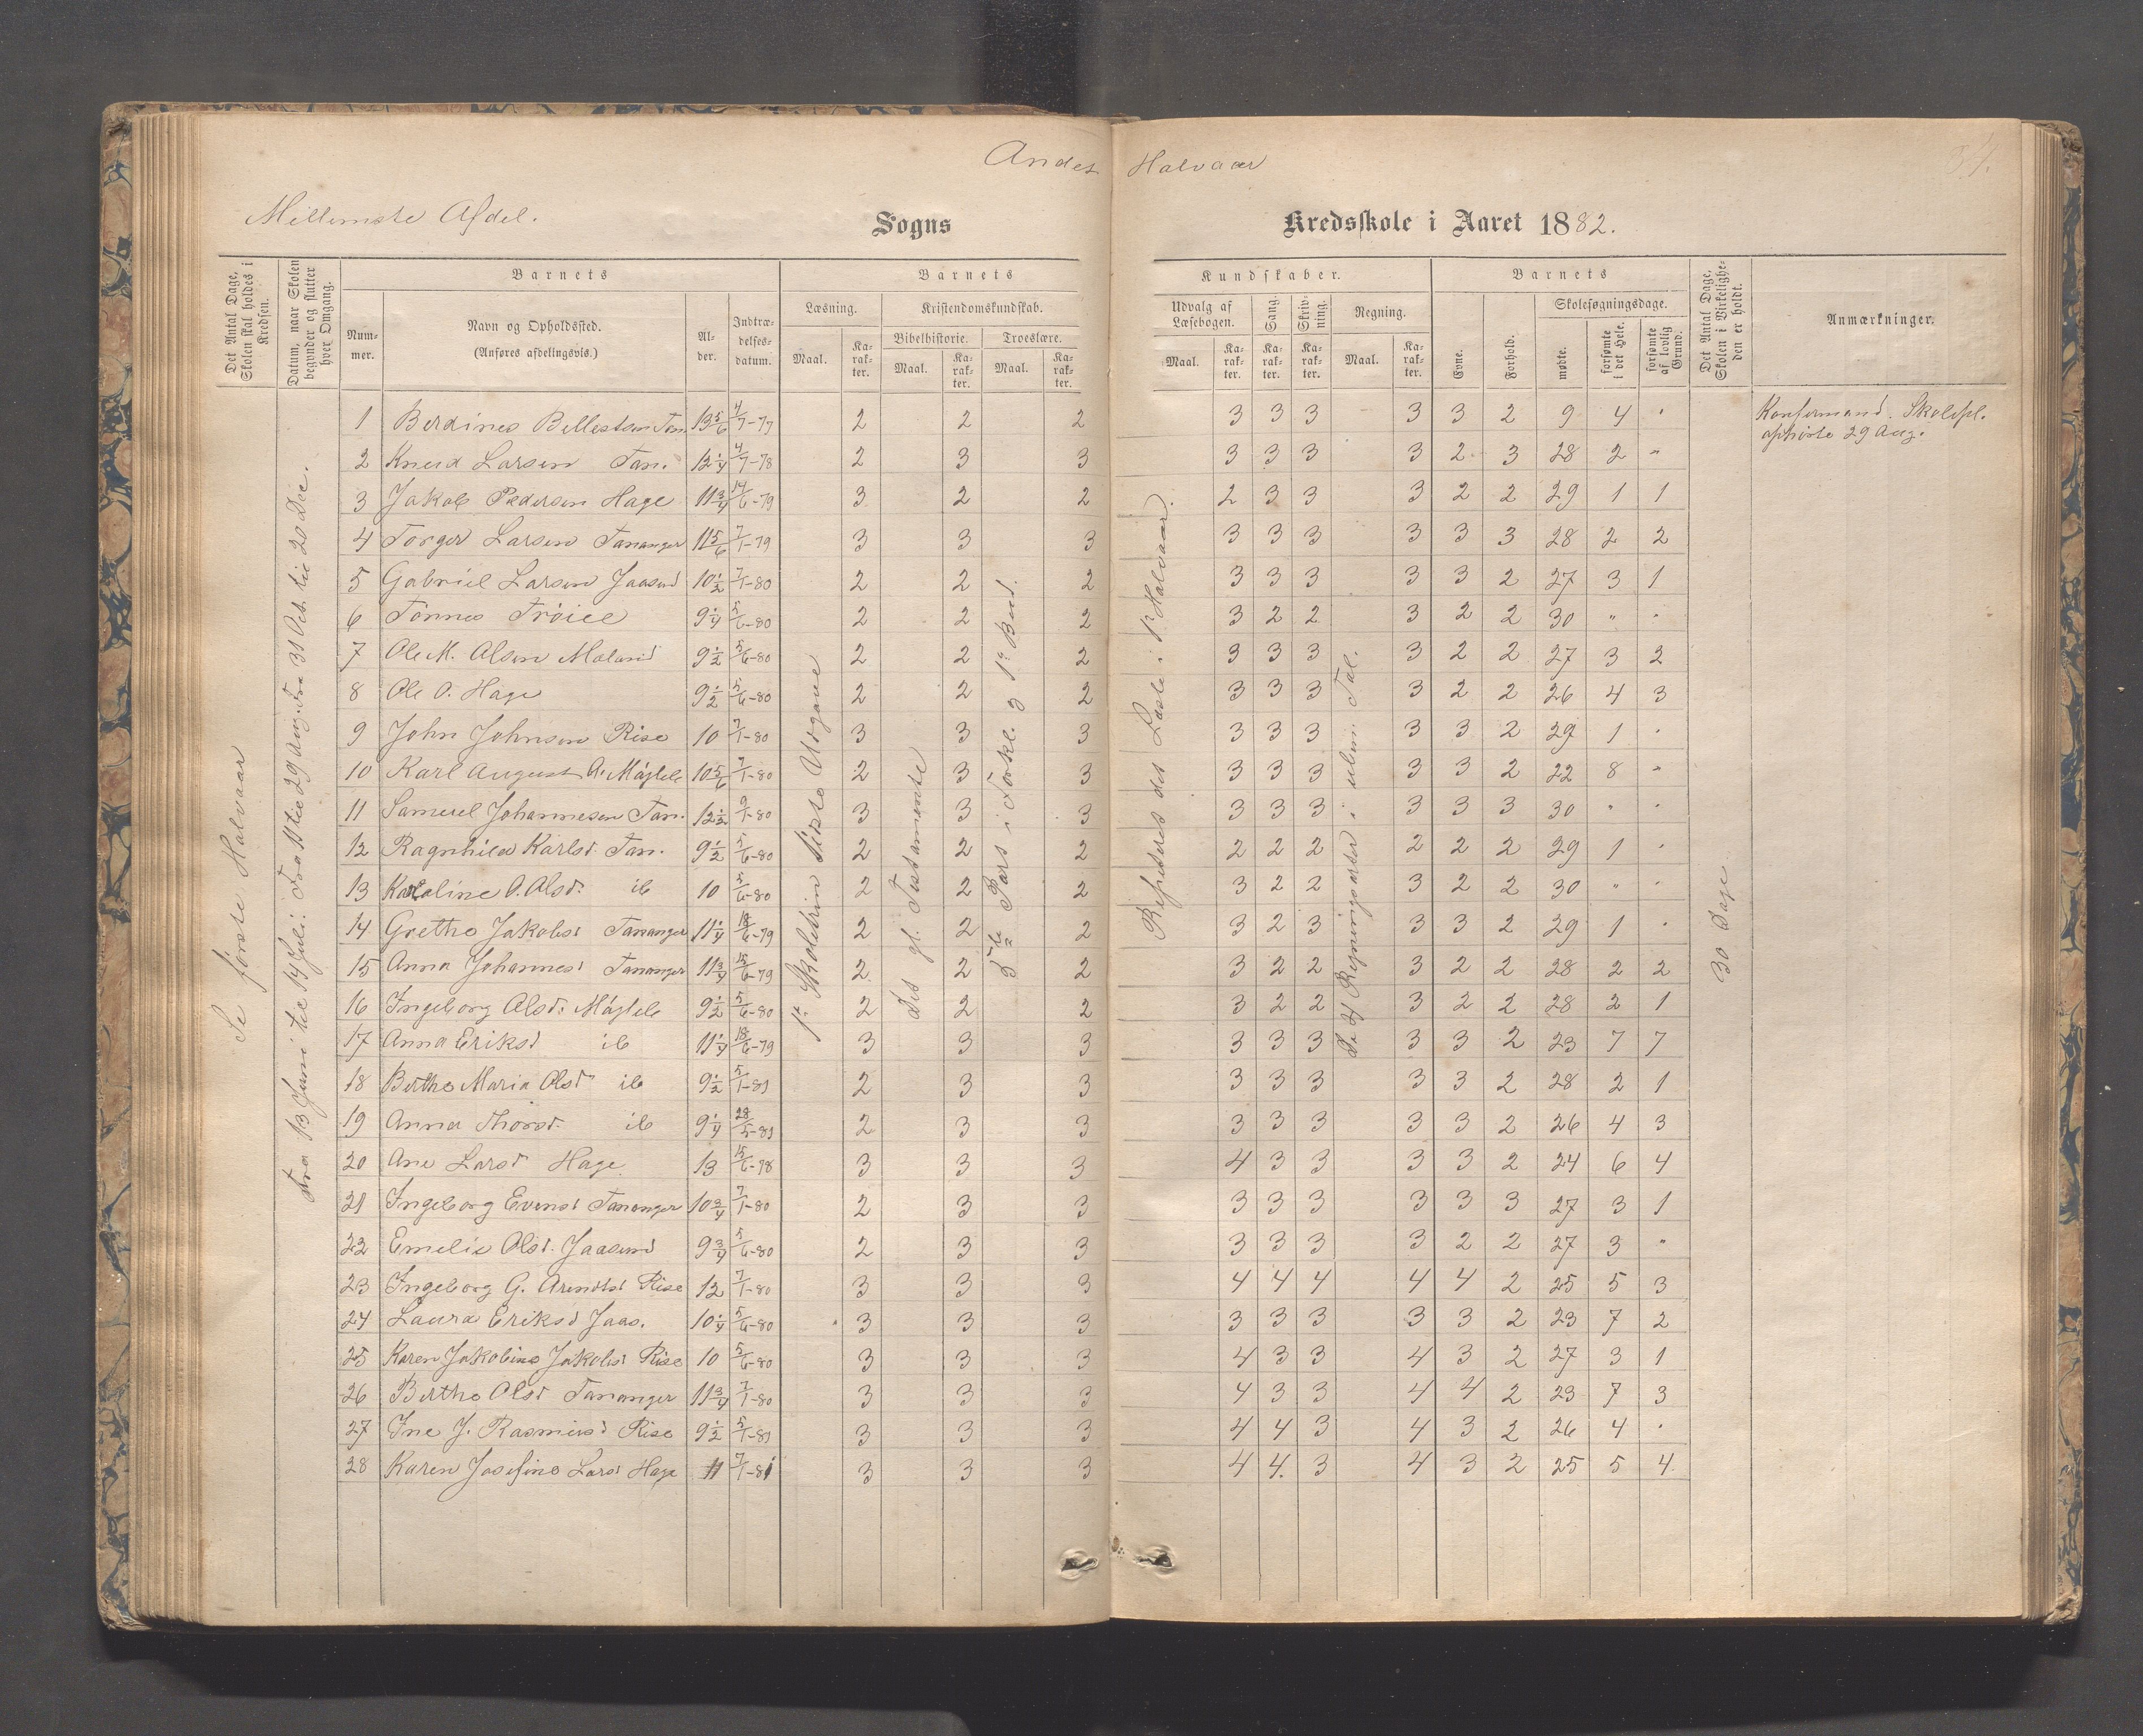 Andet Halvaar
Mellemste Afdel.
Sogns Kredsskole i Aaret 1882.
Det Antal Dage, Skolen skal holdes i Kredsen.
Datum, naar Skolen begynder og slutter hver Omgang.
Barnets
Nummer.
Navn og Opholdssted.
(Anføres afdelingsvis.)
Alder.
Indtrædelsesdatum.
Barnets Kundskaber.
Læsning.
Kristendomskundskab.
Bibelhistorie.
Troeslære.
Maal.
Karakter.
Maal.
Karakter.
Maal.
Karakter.
Udvalg af Læsebogen.
Sang.
Skrivning.
Regning.
Maal.
Karakter.
Karakter.
Karakter.
Maal.
Karakter.
Barnets
Evne.
Forhold.
Skolesøgningsdage.
mødte.
forsømte i det Hele.
forsømte af lovlig Grund.
Det Antal Dage, Skolen i Virkeligheden er holdt.
Anmærkninger.
Se første Halvaar
Fra 13 Juni til 14 Juli. Fra til 29 Aug. Fra 31 Oct. til 20 Dec.
1ste Skoletrin sidste Udgave
det gl. Testamente
Pars i Forkl. og 1ste Bud.
Repeteret det Læste i 1ste Halvaar.
De 4 Regningsarter i uben. Tal.
30 Dage
1 Berdines Tan. 13 5/6 4/7-79 2 2 2 3 3 3 3 3 2 9 4 " Konfirmand. Skolepl. ophørte 29 Aug.
2 Knud Larsen Tan. 12 1/4 4/7-78 2 3 3 3 3 3 3 2 3 28 2 "
3 Jakob Pedersen Hage 11 3/4 14/6-79 3 2 2 2 3 3 3 2 2 29 1 1
4 Torger Larsen Tananger 11 5/6 7/1-79 3 3 3 3 3 3 3 3 3 28 2 2
5 Gabriel Larsen Jaasund 10 1/2 7/1-80 2 2 2 3 3 3 3 3 2 27 3 1
6 Tønnes Trøice 9 1/4 5/6-80 2 2 2 3 2 2 3 2 2 30 " "
7 Ole M. Olsen Meland 9 1/2 5/6-80 2 2 2 3 3 3 3 2 2 27 3 2
8 Ole O. Hage 9 1/2 5/6-80 2 2 2 3 3 3 3 2 2 26 4 3
9 John Johnsen Rise 10 7/1-80 3 3 3 3 3 3 3 3 2 29 1 "
10 Karl August A. Mygleb 10 5/6 7/1-80 2 3 3 3 3 3 3 3 2 22 8 "
11 Samuel Johannesen Tan. 12 1/2 9/1-80 3 3 3 3 3 3 3 3 3 30 " "
12 Ragnhild Karlsd. Tan. 9 1/2 5/6-80 2 2 2 2 2 2 2 2 2 29 1 "
13 Karoline O. Olsd. ib 10 5/6-80 2 2 2 3 2 2 3 2 2 30 " "
14 Grethe Jakobsd Tananger 11 1/4 18/6-79 2 2 2 3 2 3 3 3 2 29 1 "
15 Anna Johannesd Tananger 11 3/4 15/6-79 2 2 2 3 2 2 3 2 2 28 2 2
16 Ingeborg Olsd. Mygleb 9 1/2 5/6-80 2 2 2 3 2 2 3 2 2 28 2 1
17 Anna Eriksd ib 11 1/4 18/6-79 3 3 3 3 3 3 3 3 2 23 7 7
18 Berthe Maria Olsd ib 9 1/2 5/1-81 2 3 3 3 3 3 3 3 2 28 2 1
19 Anna Thorsd. ib 9 1/4 28/5-81 2 3 3 3 3 3 3 3 2 26 4 3
20 Ane Larsd Hage 13 15/6-78 3 3 3 4 3 3 3 3 2 24 6 4
21 Ingeborg Evensd Tananger 10 3/4 7/1-80 2 3 3 3 3 3 3 3 3 27 3 1
22 Emelie Olsd. Jaasund 9 3/4 5/6-80 2 3 3 3 3 3 3 2 2 27 3 "
23 Ingeborg G. Arendtsd Rise 12 7/1-80 3 3 3 4 4 4 4 4 2 25 5 3
24 Laura Eriksd Jaas. 10 1/4 5/6-80 3 3 3 3 3 3 3 3 2 23 7 2
25 Karen Jakobine Jakobsd Rise 10 5/6-80 3 3 3 4 3 3 4 3 2 27 3 1
26 Berthe Olsd Tananger 11 3/4 7/1-80 3 3 3 4 3 3 4 4 2 23 7 3
27 Ine J. Rasmusd Rise 9 1/2 5/1-81 3 3 3 4 4 3 4 3 2 26 4 "
28 Karen Josefine Larsd Hage 11 7/1-81 3 3 3 4 4. 3 4 3 2 25 5 4